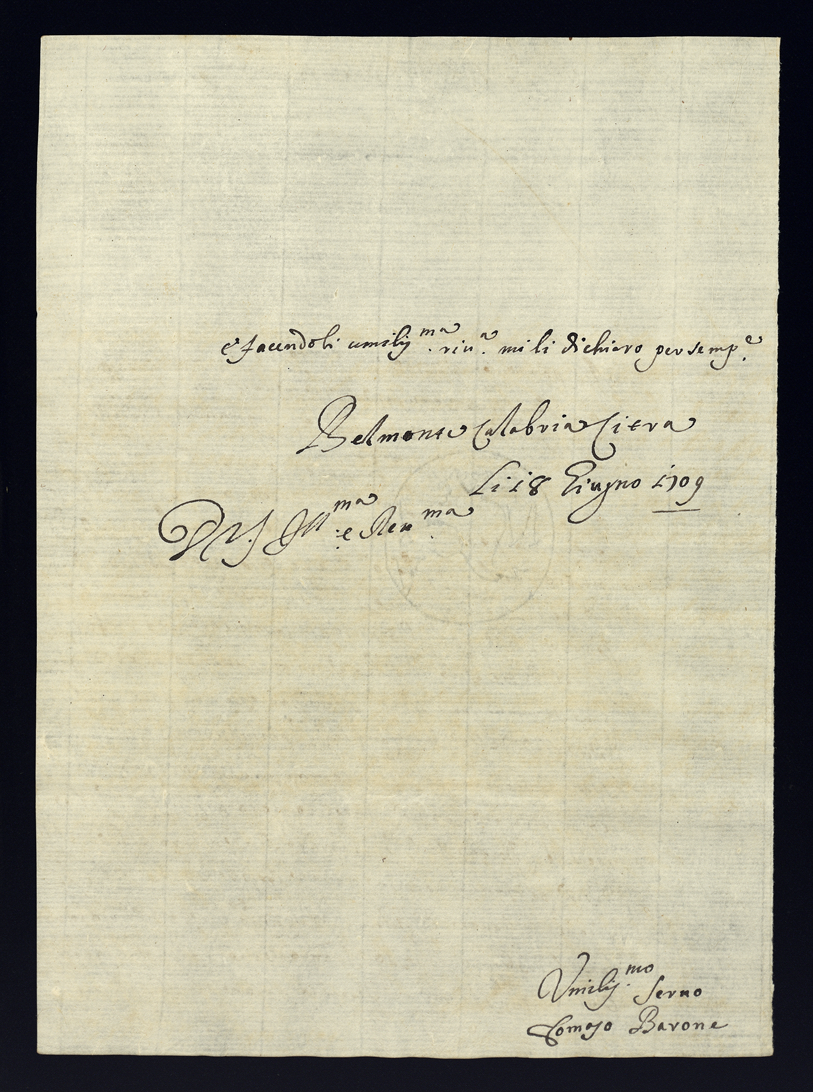 e facendoli umiliss.ma riu.a mi li dichiaro per semp.e
Belmonte Calabria Citra
Li 18 Giugno 1709
D V.S. Ill.ma e Reu.ma
Vmiliss.mo Seruo
Tomaso Barone